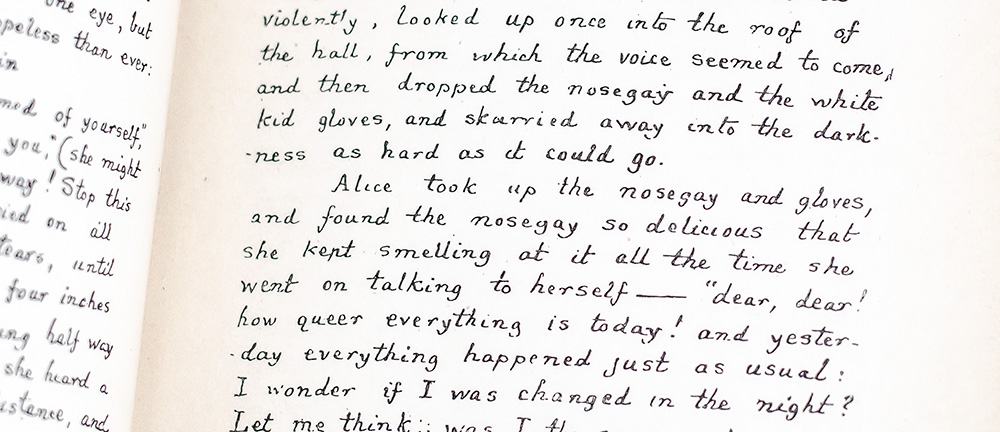 one eye, but
than ever:
in
of yourself,"
you," (she might
way! Stop this
on all
tears, until
four inches
half way
she heard a
and
violently, looked up once into the roof of
the hall, from which the voice seemed to come,
and then dropped the nosegay and the white
kid gloves, and skurried away into the dark-
-ness as hard as it could go.
Alice took up the nosegay and gloves,
and found the nosegay so delicious that
she kept smelling at it all the time she
went on talking to herself — "dear, dear!
how queer everything is today! and yester-
-day everything happened just as usual:
I wonder if I was changed in the night?
Let me think: was I